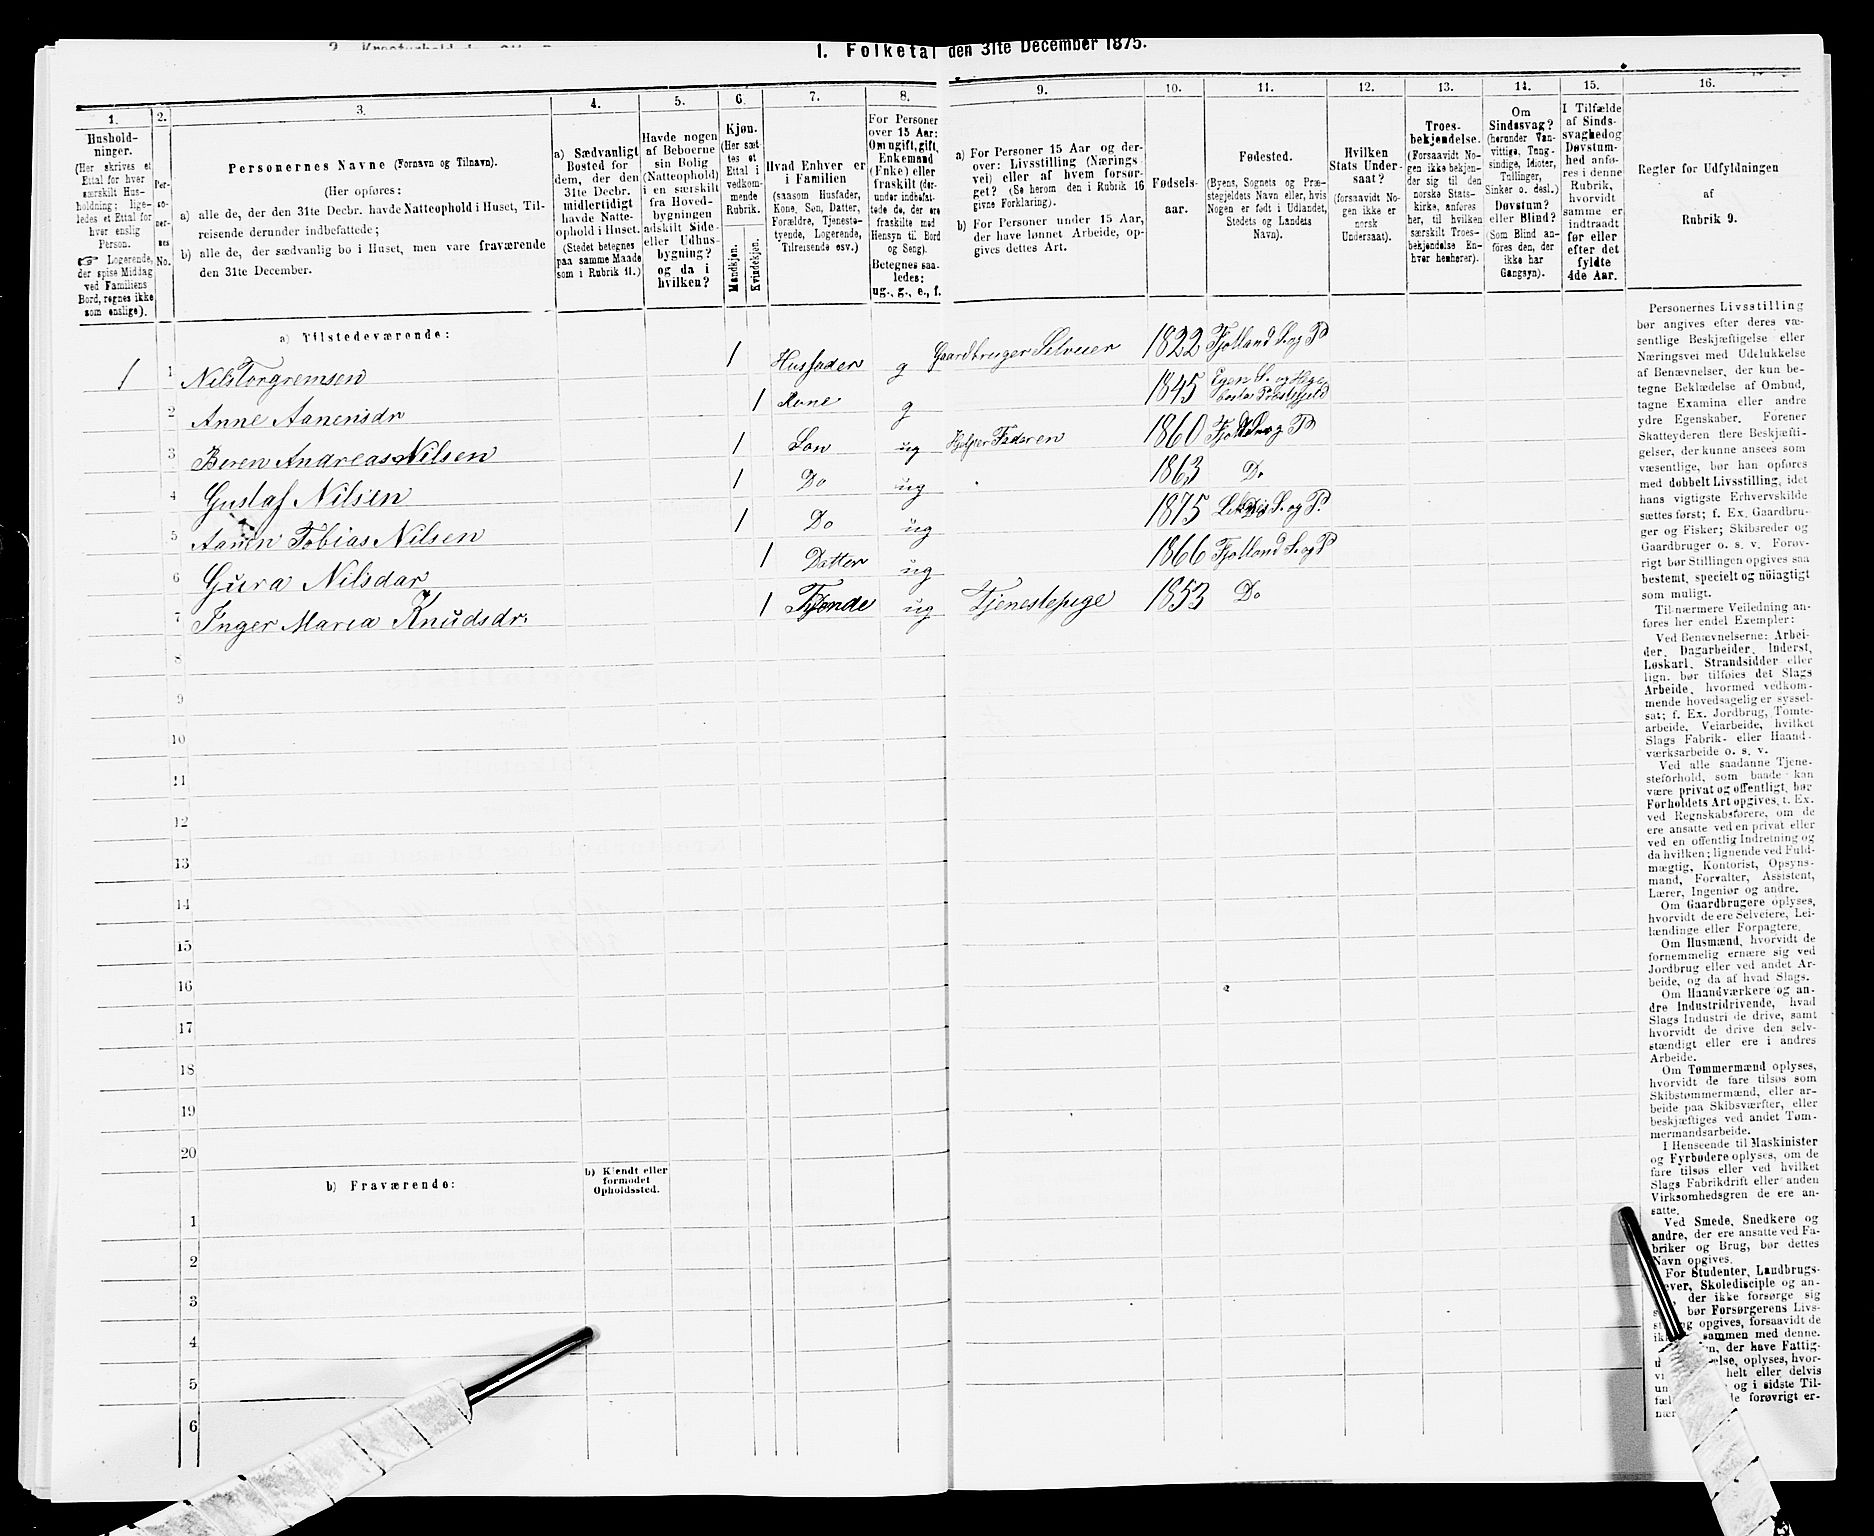 1. Folketal den 31te December 1875.
1. 2. 3. 4. 5. 6. 7. 8. 9. 10. 11. 12. 13. 14. 15. 16.
Hushold-
ninger.
(Her skrives et
Ettal for hver
særskilt Hus-
holdning; lige-
ledes et Ettal for
hver enslig
Person.
☞ Logerende,
der spise Middag
ved Familiens
Bord, regnes ikke
som enslige).
Per-
so-
ner-
nes
No.
Personernes Navne (Fornavn og Tilnavn).
(Her opføres:
a) alle de, der den 31te Decbr. havde Natteophold i Huset, Til-
reisende derunder indbefattede;
b) alle de, der sædvanlig bo i Huset, men vare fraværende
den 31te December.
a) Sædvanligt
Bosted for
dem, der den
31te Decbr.
midlertidigt
havde Natte-
ophold i Huset.
(Stedet betegnes
paa samme Maade
som i Rubrik 11.)
Havde nogen
af Beboerne
sin Bolig
(Natteophold)
i en særskilt
fra Hoved-
bygningen
adskilt Side-
eller Udhus-
bygning?
og da i
hvilken?
Kjøn.
(Her sæt-
tes et
Ettal i
vedkom-
mende
Rubrik.
Mandkjøn.
Kvindekjøn.
Hvad Enhver er
i Familien
(saasom Husfader,
Kone, Søn, Datter,
Forældre, Tjeneste-
tyende, Logerende,
Tilreisende osv.)
For Personer
over 15 Aar:
Om ugift, gift,
Enkemand
(Enke) eller
fraskilt (der-
under indbefat-
tede de, der ere
fraskilte med
Hensyn til Bord
og Seng).
Betegnes saa-
ledes:
ug., g., e., f.
a) For Personer 15 Aar og der-
over: Livsstilling (Nærings-
vei) eller af hvem forsør-
get? (Se herom den i Rubrik 16
givne Forklaring).
b) For Personer under 15 Aar,
der have lønnet Arbeide, op-
gives dettes Art.
Fødsels-
aar.
Fødested.
(Byens, Sognets og Præ-
stegjeldets Navn eller, hvis
Nogen er født i Udlandet,
Stedets og Landets
Navn).
Hvilken
Stats Under-
saat?
(forsaavidt No-
gen ikke er
norsk
Undersaat).
Troes-
bekjendelse.
(Forsaavidt No-
gen ikke bekjen-
der sig til den
norske Stats-
kirke, anføres
her, til hvilken
særskilt Troes-
bekjendelse En-
hver henhører).
Om
Sindssvag?
(herunder Van-
vittige, Tung-
sindige, Idioter,
Tullinger,
Sinker o. desl.)
Døvstum?
eller Blind?
(Som Blind an-
føres den, der
ikke har
Gangsyn).
I Tilfælde
af Sinds-
svaghed og
Døvstum-
hed anfø-
res i denne
Rubrik,
hvorvidt
samme er
indtraadt
før eller
efter det
fyldte
4de Aar.
Regler for Udfyldningen
af
Rubrik 9.
a) Tilstedeværende:
1 1 Nils Torgremsen 1 Husfader g Gaardbruger Selveier 1822 Fjotland S. og P
2 Anne Aanensdr 1 Kone g 1845 S. og Hege-
bostad Præstegjeld
3 Beren Andreas Nilsen 1 Søn ug Hjelper Faderen 1860 Fjotland S og P
4 Gustaf Nilsen 1 Do ug 1863 Do
5 Aanen Tobias Nilsen 1 Do ug 1875 S. og P.
6 Gura Nilsdar 1 Datter ug 1866 Fjotland S. og P
7 Inger Maria Knudsdr. 1 ug Tjenestepige 1853 Do
8
9
10
11
12
13
14
15
16
17
18
19
20
b) Fraværende:
b) Kjendt eller
formodet
Opholdssted.
1
2
3
4
5
6
Personernes Livsstilling
bør angives efter deres væ-
sentlige Beskjæftigelse eller
Næringsvei med Udelukkelse
af Benævnelser, der kun be-
tegne Beklædelse af Ombud,
tagne Examina eller andre
ydre Egenskaber. Forener
Skatteyderen flere Beskjæfti-
gelser, der kunne ansees som
væsentlige, bør han opføres
med dobbelt Livsstilling, idet
hans vigtigste Erhvervskilde
sættes først; f. Ex. Gaardbru-
ger og Fisker; Skibsreder og
Gaardbruger o. s. v. Forøv-
rigt bør Stillingen opgives saa
bestemt, specielt og nøiagtigt
som muligt.
Til nærmere Veiledning an-
føres her endel Exempler:
Ved Benævnelserne: Arbei-
der, Dagarbeider, Inderst,
Løskarl, Strandsidder eller
lign. bør tilføies det Slags
Arbeide, hvormed vedkom-
mende hovedsagelig er syssel-
sat; f. Ex. Jordbrug, Tomte-
arbeide, Veiarbeide, hvilket
Slags Fabrik- eller Haand-
værksarbeide o. s. v.
Ved alle saadanne Tjene-
steforhold, som baade kan
være privat og offentligt, bør
Forholdets Art opgives, t. Ex.
ved Regnskabsførere, om de
ere ansatte ved en privat eller
ved en offentlig Indretning og
da hvilken; lignende ved Fuld-
mægtig, Kontorist, Opsyns-
mand, Forvalter, Assistent,
Lærer, Ingeniør og andre.
Om Gaardbrugere oplyses,
hvorvidt de ere Selveiere, Lei-
lændinge eller Forpagtere.
Om Husmænd, hvorvidt de
fornemmelig ernære sig ved
Jordbrug eller ved andet Ar-
beide, og da af hvad Slags.
Om Haandværkere og an-
dre Industridrivende, hvad
Slags Industri de drive, samt
hvorvidt de drive den selv-
stændigt eller ere i andres
Arbeide.
Om Tømmermænd oplyses,
hvorvidt de fare tilsøs som
Skibstømmermænd, eller ar-
beide paa Skibsværfter, eller
beskjæftiges ved andet Tøm-
mermandsarbeide.
I Henseende til Maskinister
og Fyrbødere oplyses, om de
fare tilsøs eller ved hvilket
Slags Fabrikdrift eller anden
Virksomhedsgren de ere an-
satte.
Ved Smede, Snedkere og
andre, der ere ansatte ved Fa-
briker og Brug, bør dettes
Navn opgives.
For Studenter, Landbrugs-
elever, Skoledisciple og an-
der ikke forsørge sig
bør Forsørgerens Livs-
opgives, forsaavidt de
sammen med denne.
der have Fattig-
else, oplyses, hvor-
helt eller delvis
og i sidste Til-
forøvrigt er-